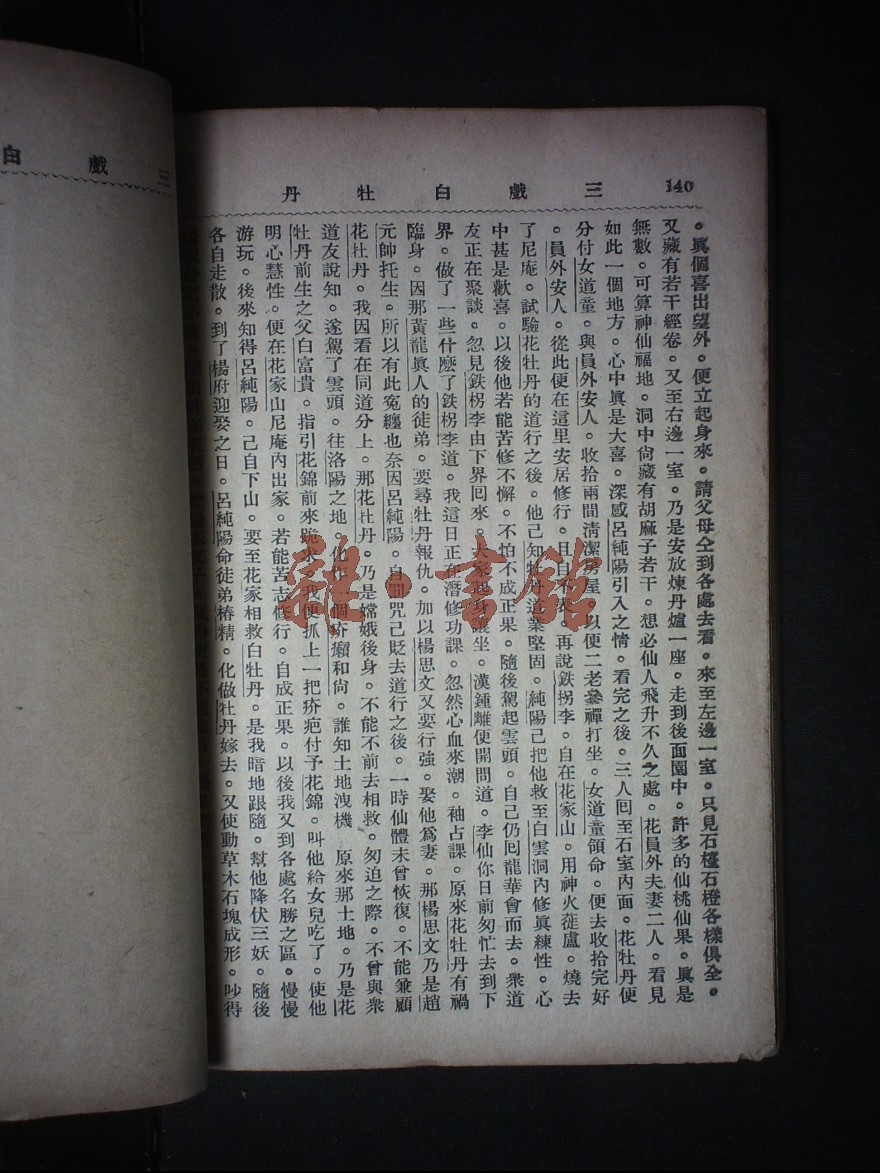 三戲白牡丹
140
。眞個喜出望外。便立起身來。請父母仝到各處去看。來至左邊一室。只見石檯石櫈各樣俱全。
又藏有若干經卷。又至右邊一室。乃是安放煉丹爐一座。走到後面園中。許多的仙桃仙果。眞是
無數。可算神仙福地。洞中尙藏有胡麻子若干。想必仙人飛升不久之處。花員外夫妻二人。看見
如此一個地方。心中眞是大喜。深感呂純陽引入之情。看完之後。三人囘至石室內面。花牡丹便
分付女道童。與員外安人。收拾兩間淸潔房屋。以便二老參禪打坐。女道童領命。便去收拾完好
。員外安人。從此便在這里安居修行。且自不表。再說鉄拐李。自在花家山。用神火蓰盧。燒去
了尼庵。試驗花牡丹的道行之後。他已知牡丹道業堅固。純陽已把他救至白雲洞內修眞練性。心
中甚是歡喜。以後他若能苦修不懈。不怕不成正果。隨後駕起雲頭。自己仍囘龍華會而去。衆道
友正在聚談。忽見鉄拐李由下界囘來。大家起身讓坐。漢鍾離便開問道。李仙你日前匆忙去到下
界。做了一些什麼了鉄拐李道。我這日正在潛修功課。忽然心血來潮。袖占課。原來花牡丹有禍
臨身。因那黃龍眞人的徒弟。要尋牡丹報仇。加以楊思文又要行強。娶他爲妻。那楊思文乃是趙
元帥托生。所以有此冤纏也奈因呂純陽。自罰咒己貶去道行之後。一時仙體未曾恢復。不能兼顧
花牡丹。我因看在同道分上。那花牡丹。乃是嫦娥後身。不能不前去相救。匆迫之際。不曾與衆
道友說知。遂駕了雲頭。往洛陽之地。化作一個疥癩和尙。誰知土地洩機 原來那土地。乃是花
牡丹前生之父白富貴。指引花錦前來跪求。我便抓上一把疥疤付予花錦。叫他給女兒吃了。使他
明心慧性。便在花家山尼庵內出家。若能苦志修行。自成正果。以後我又到各處名勝之區。慢慢
游玩。後來知得呂純陽。己自下山。要至花家相救白牡丹。是我暗地跟隨。幫他降伏三妖。隨後
各自走散。到了楊府迎娶之日。呂純陽命徒弟椿精。化做牡丹嫁去。又使動草木石塊成形。吵得
三戲白
雜·書館